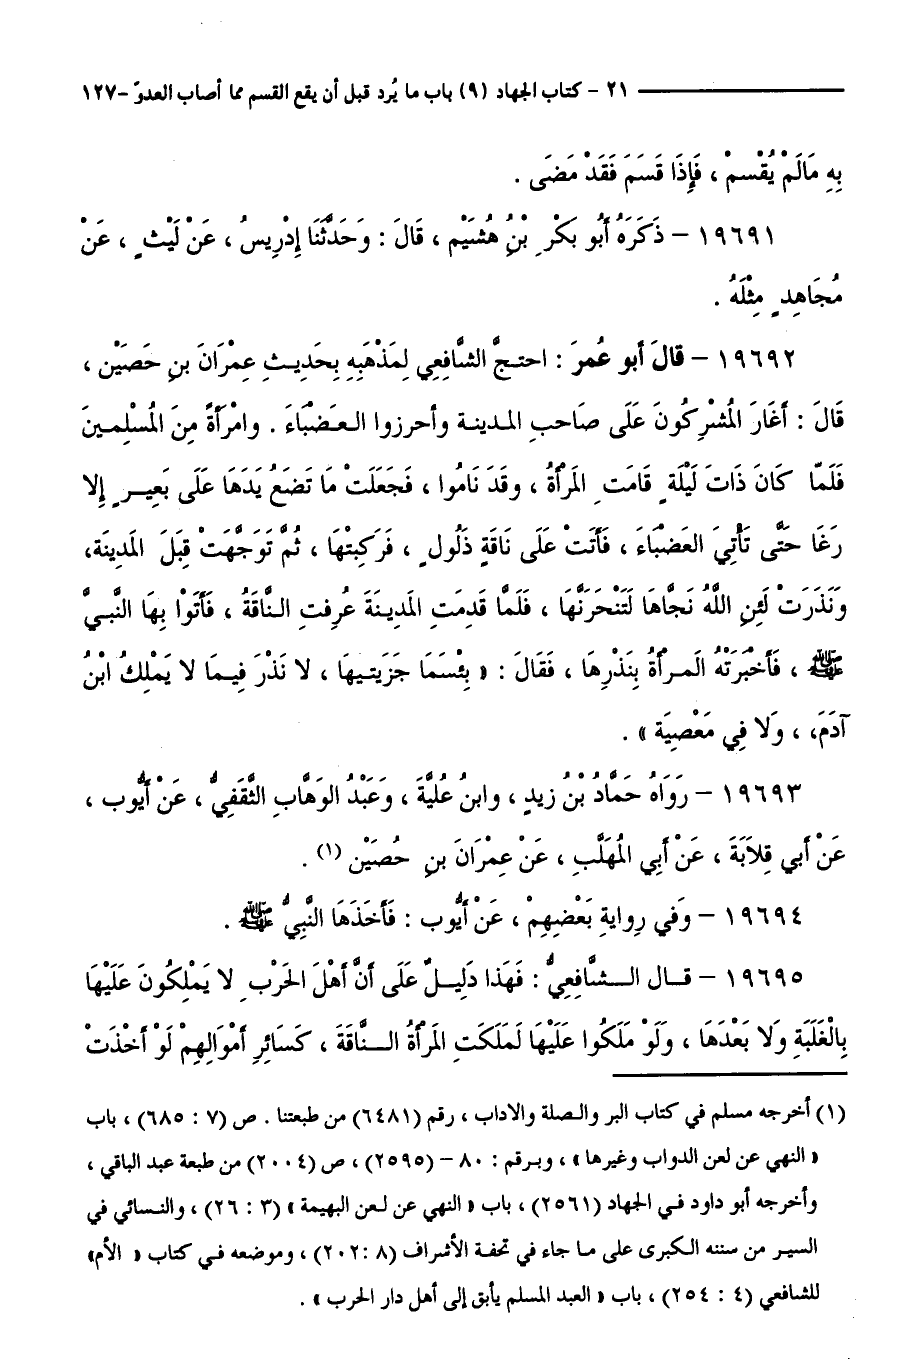 ٢١ - كتاب الجهاد (٩) باب ما يُرد قبل أن يقع القسم مما أصاب العدوّ -١٢٧
بِهِ مَالَمْ يُقْسمْ ، فَإِذَا قَسَمَ فَقَدْ مَضَى .
١٩٦٩١ – ذَكَرَهُ أَبُو بَكْرِ بْنُ هُشَيْمٍ ، قَالَ : وَحَدَّثَنَا إِدْرِيسُ ، عَنْ لَيْثٍ ، عَنْ
مُجَاهِدٍ مِثْلَهُ .
١٩٦٩٢ – قالَ أبو عُمرَ : احتجَّ الشَّافِعِي لِمَذْهَبِهِ بِحَدِيثِ عِمْرَانَ بنِ حَصَيْن ،
قَالَ : أَغَارَ الْمُشْرِكُونَ عَلَى صَاحبِ المدينة وأحرزوا العَضْبَاءَ . وامْرَأَةً مِنَ الْمُسْلِمينَ
فَلَمّا كَانَ ذَاتَ لَيْلَةٍ قَامَتِ المَرْأَةُ ، وقَدَ نَامُوا ، فَجَعَلَتْ مَا تَضَعُ يَدَهَا عَلَى بَعِيرٍ إِلا
رَغَا حَتَّى تَأْتِيَ العَضْبَاءَ ، فَأَتَتْ عَلَى نَاقَةٍ ذَلُولٍ ، فَرَكِبتْهَا ، ثُمَّ تَوَجَّهَتْ قِبَلَ المَدِينَة،
وَنَذَرَتْ لَئِنِ اللَّهُ نَجَّاهَا لَتَنْحَرَنَّهَا ، فَلَمَّا قَدِمَتِ المَدِينَةَ عُرِفتِ النَّاقَةُ ، فَأَتَوْا بِهَا النَّبيَّ
ﷺ ، فَأَخْبَرَتْهُ المَرْأَةُ بِنَذْرِهَا ، فَقَالَ : « بِئْسَمَا جَزَيتيهَا ، لا نَذْرَ فِيمَا لا يَمْلِكُ ابْنُ
آدَمَ، ، وَلا فِي مَعْصِيَة » .
١٩٦٩٣ – رَوَاهُ حَمَّادُ بْنُ زيدٍ ، وابنُ عُلَيَّةَ ، وعَبْدُ الوَهَّابِ الثَّقَفِيُّ ، عَنْ أَيُّوب ،
عَنْ أَبي قِلابَةَ ، عَنْ أَبِي المُهَلَّبِ ، عَنْ عِمْرَانَ بنِ حُصَيْن (١) .
١٩٦٩٤ – وَفي رِوايةِ بَعْضِهِمْ ، عَنْ أَيُّوب : فَأَخَذَهَا النَّبِيُّ ﷺ .
١٩٦٩٥ – قال الشَّافِعِيُّ : فَهَذا دَلِيلٌ عَلَى أَنَّ أَهْلَ الحَرْبِ لا يَمْلِكُونَ عَلَيْهَا
بِالْغَلَبَةِ وَلا بَعْدَهَا ، ولَوْ مَلَكُوا عَلَيْهَا لَمَلَكَتِ المَرْأَةُ النَّاقَةَ ، كَسَائِرِ أَمْوَالِهِمْ لَوْ أَخْذَتْ
(١) أخرجه مسلم في كتاب البر والصلة والاداب ، رقم (٦٤٨١) من طبعتنا . ص (٧ : ٦٨٥) ، باب
« النهي عن لعن الدواب وغيرها » ، وبرقم : ٨٠ – (٢٥٩٥) ، ص (٢٠٠٤) من طبعة عبد الباقي ،
وأخرجه أبو داود في الجهاد (٢٥٦١) ، باب « النهي عن لعن البهيمة » (٣ : ٢٦) ، والنسائي في
السير من سننه الكبرى على ما جاء في تحفة الأشراف (٨ :٢٠٢) ، وموضعه في كتاب « الأم»
للشافعي (٤ : ٢٥٤) ، باب « العبد المسلم يأبق إلى أهل دار الحرب » .